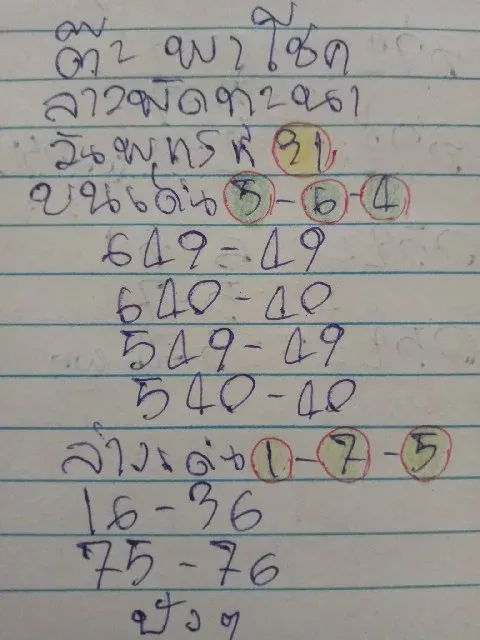 ต๊ะ พาโชค
ลาวพัฒทะนา
วันพุทธที่ 31
บนเด่น 5-6-4
649-49
640-40
549-49
540-40
ล่างเด่น 1-7-5
16-36
75-76
ปังๆ